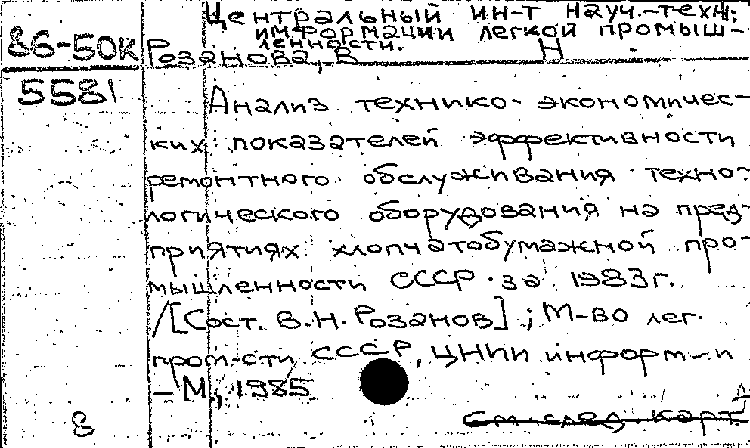 Центральный ин-т науч.-техн.
информации легкой промыш-
86-50К
ленности.
Н
Розанова, В.
5581
Анализ технико-экономичес-
ких показателей эффективности
ремонтного обслуживания техно-
логического оборудования на пред-
приятиях хлопчатобумажной про-
мышленности СССР за 1983г.
/[Сост. В.Н. Розанов]; М-во лег.
пром-сти СССР, ЦНИИ информ-и
– М., 1985
8
См. след. карт.